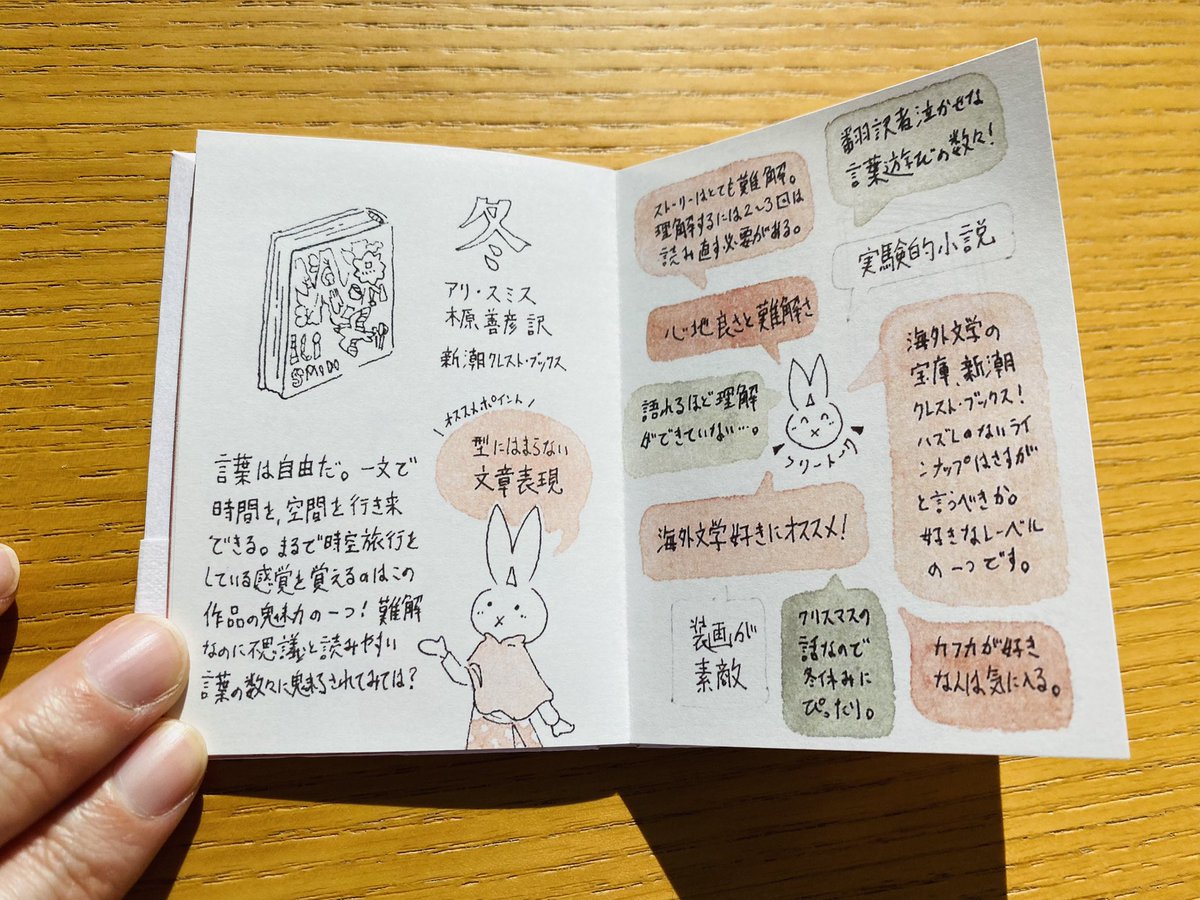 冬
アリ・スミス
木原善彦 訳
新潮クレスト・ブックス
オススメポイント
型にはまらない
文章表現
言葉は自由だ。一文で
時間を、空間を行き来
できる。まるで時空旅行を
している感覚を覚えるのはこの
作品の魅力の一つ！難解
なのに不思議と読みやすい
言葉の数々に魅了されてみては？
翻訳者泣かせな
言葉遊びの数々！
ストーリーはとても難解。
理解するには2〜3回は
読み直す必要がある。
実験的小説
心地良さと難解さ
海外文学の
宝庫、新潮
クレスト・ブックス！
ハズレのないライ
ンナップはさすが
と言うべきか。
好きなレーベル
の一つです。
語れるほど理解
ができていない…。
フリートーク
海外文学好きにオススメ！
装画が
素敵
クリスマスの
話なので
冬休みに
ぴったり。
カフカが好き
な人は気に入る。